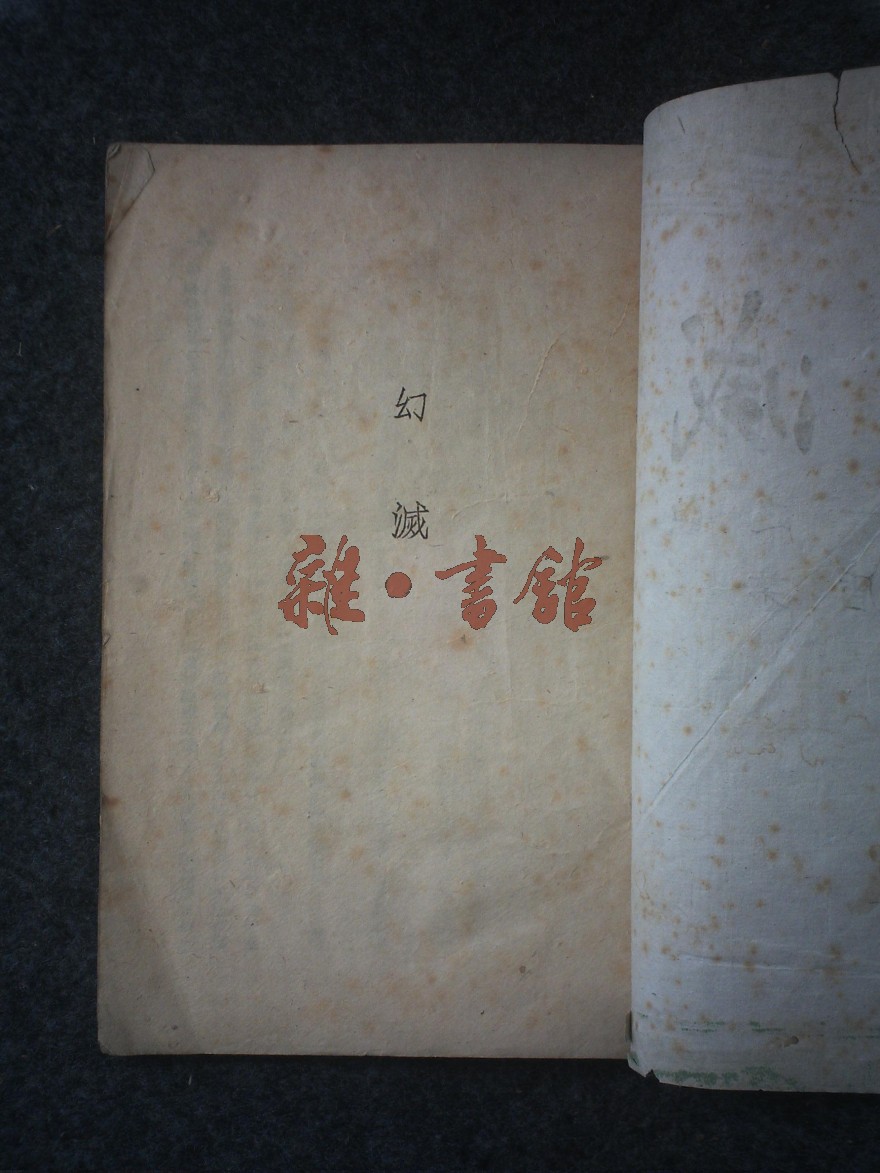 幻滅
雜·書館